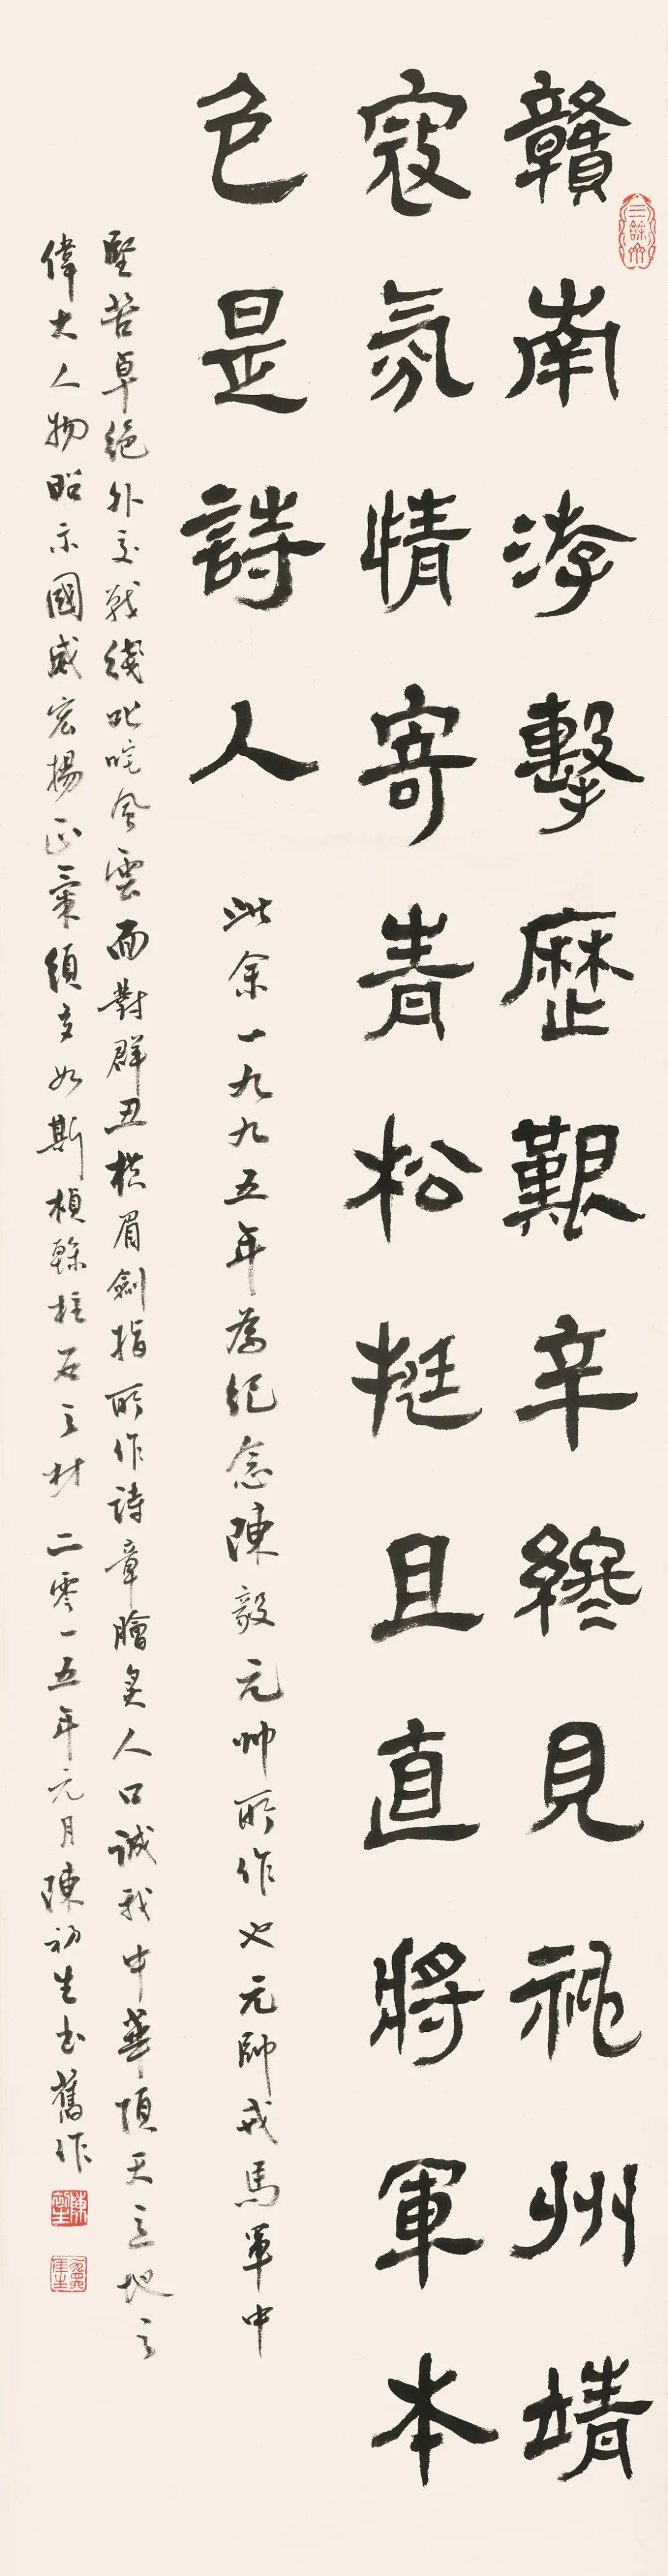 贛南游擊歷艱辛終見神州靖
寇氛情寄青松挺且直將軍本
色是詩人
此余一九九五年為紀念陳毅元帅所作也元帥戎馬軍中
堅苦卓絕外交戰綫叱咤風雲面對群丑橫眉劍指所作詩章膾炙人口誠我中華頂天立地之
偉大人物昭示國威宏揚正氣須多如斯楨榦柱石之材二零一五年元月陳初生書舊作
陳初生